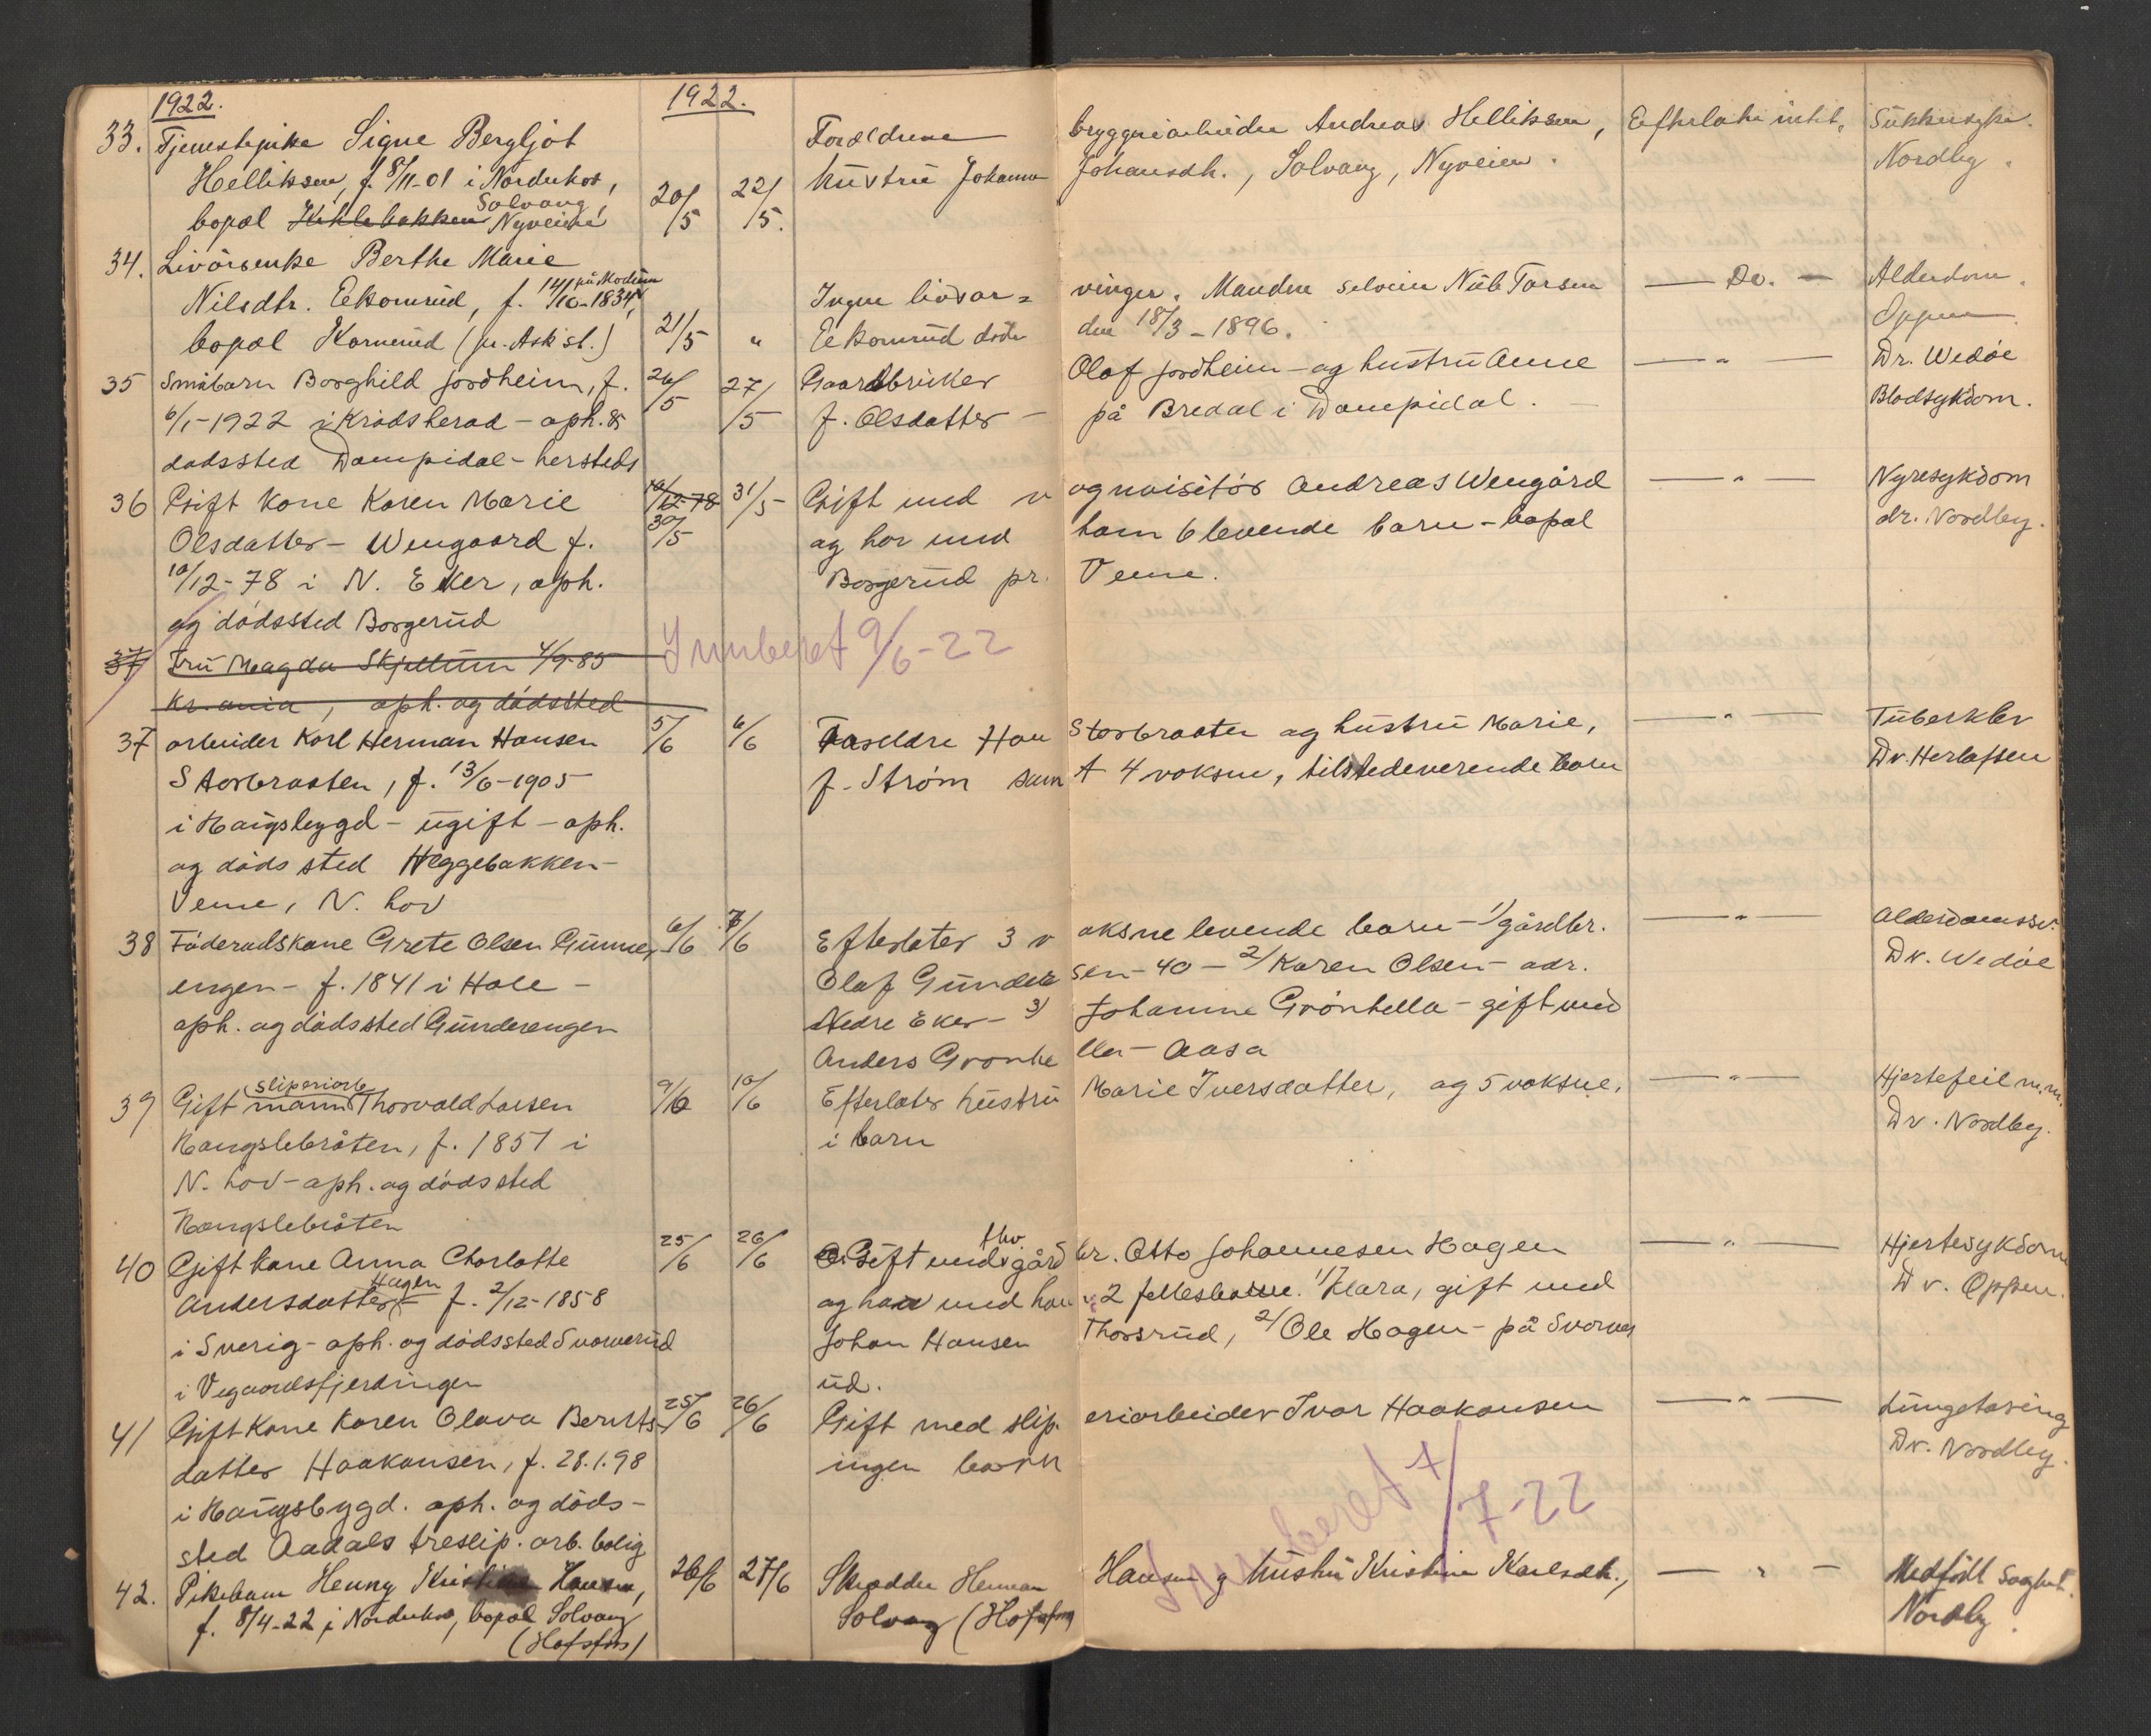 1922. 1922.
33. Tjenestepike Signe Bergljot Forældrene bryggeriarbeider Andreas Helliksen, Efterlater intet. Sukkersyke.
Helliksen, f. 8/11-01 i Norderhov, 20/5 22/5. hustru Johanne Johansdtr., Solvang, Nyveien. Nordby.
bopæl Kihlebakken Solvang, Nyveien
34. Livørsenke Berthe Marie
Nilsdtr. Eekornrud, f. 14/10-1834, på Modum Ingen livsar= vinger. Manden selveier Nils Torsen — Do. — Alderdom.
bopæl Kornerud (pr. Ask st.) 21/5 " Eekornrud døde den 18/3-1896. Oppen
35 Småbarn Borghild Jordheim, f. 26/5 27/5 Gaardbruker Olaf Jordheim - og hustru Anne — " — Dr. Wedøe
6/1-1922 i Krødsherad - oph. & f. Olsdatter - på Bredal i Dampidal. - Blodsykdom.
dødssted Dampidal - hersteds
36 Gift kone Karen Marie 10/12-78 31/5 - Gift med v ognvisitør Andreas Wengård — " — Nyresykdom
Olsdatter - Wengaard f. 30/5 og har med ham 6 levende barn - bopæl dr. Nordby.
10/12-78 i N. Eker, oph. Borgerud pr. Veme.
og dødssted Borgerud
37 Fru Magda Skjellum 4/9-85 Innberet 9/6-22
Kr.ania, oph. og dødssted
37 arbeider Karl Herman Hansen 5/6 6/6 Foreldre Han Storbraaten og hustru Marie, — " — Tuberkler
Storbraaten, f. 13/6-1905 f. Strøm sam t 4 voksne, tilstedeverende barn Dr. Herlofsen
i Haugsbygd - ugift - oph.
og dødssted Heggebakken -
Veme, N. hov
38 Føderadskone Grete Olsen Gunder 6/6 7/6 Efterlater 3 v oksne levende barn - 1/ gårdbr. — " — Alderdomssv.
engen - f. 1841 i Hole - Olaf Gunder sen - 40 - 2/ Karen Olsen - adr. Dr. Wedøe
oph. og dødssted Gunderengen Nedre Eker - 3/ Johanne Grönhella - gift med
Anders Gronhe lla - Aasa
39 Gift sliperiarb mann Thorvald Larsen 9/6 10/6 Efterlater hustru Marie Iversdatter, og 5 voksne, — " — Hjertefeil m.m.
Haugslebråten, f. 1851 i i barn Dr. Nordby.
N. hov - oph. og dødssted
Haugslebråten
40 Gift kone Anna Charlotte 25/6 26/6 Gift med fhv gård br. Otto Johannesen Hagen — " — Hjertesykdom
Andersdatter - Hagen f. 2/12-1858 og har med han 2 fellesbarn. 1/ Klara, gift med Dr. Oppen.
i Sverig - oph. og dødssted Svarverud Johan Hansen Thorsrud, 2/ Ole Hagen - på Svarver
i Vegaardsfjerdingen ud.
41 Gift Kone Karen Olava Bernts- 25/6 26/6 Gift med slip. eriarbeider Ivar Haakonsen — " — Lungetæring
datter Haakonsen, f. 28.1.98 ingen barn Dr. Nordby.
i Haugsbygd. oph. og døds- Innberet 7/7-22
sted Aadals treslip. arb. bolig
42. Pikebarn Henny Kristine Hansen, 26/6 27/6 Skrædder Herman Hansen og hustru Kristine Karlsdtr., — " — Medfødt svaghet.
f. 8/4-22 i Norderhov, bopæl Solvang Solvang (Hofsfoss) Nordby.
(Hofsfos)